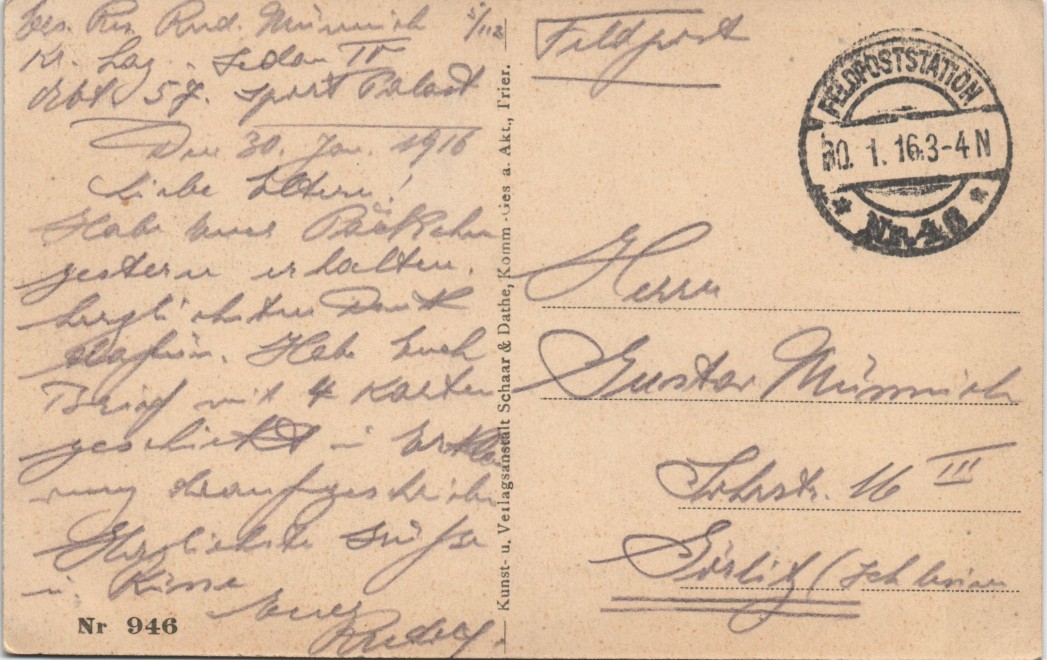 Ges. Res. Rud. Münnich 5/112
Kr. Laz. Sedan IV
Abt 57. Sport Palast
Den 30. Jan. 1916
Liebe Eltern!
Habe euer Päckchen
gestern erhalten.
herzlichsten Dank
dafür. Habe Euch
Brief mit 4 Karten
geschickt u. Erklä
rung draufgeschrieben
Herzlichste Grüße
u. Küsse
Euer
Rudolf.
Nr 946
Kunst- u. Verlagsanstalt Schaar & Dathe, Komm.-Ges a. Akt., Trier.
Feldpost
FELDPOSTSTATION
30. 1. 16. 3-4 N
* Nr. 46 *
Herrn
Gustav Münnich
16 III
Görlitz (Schlesien